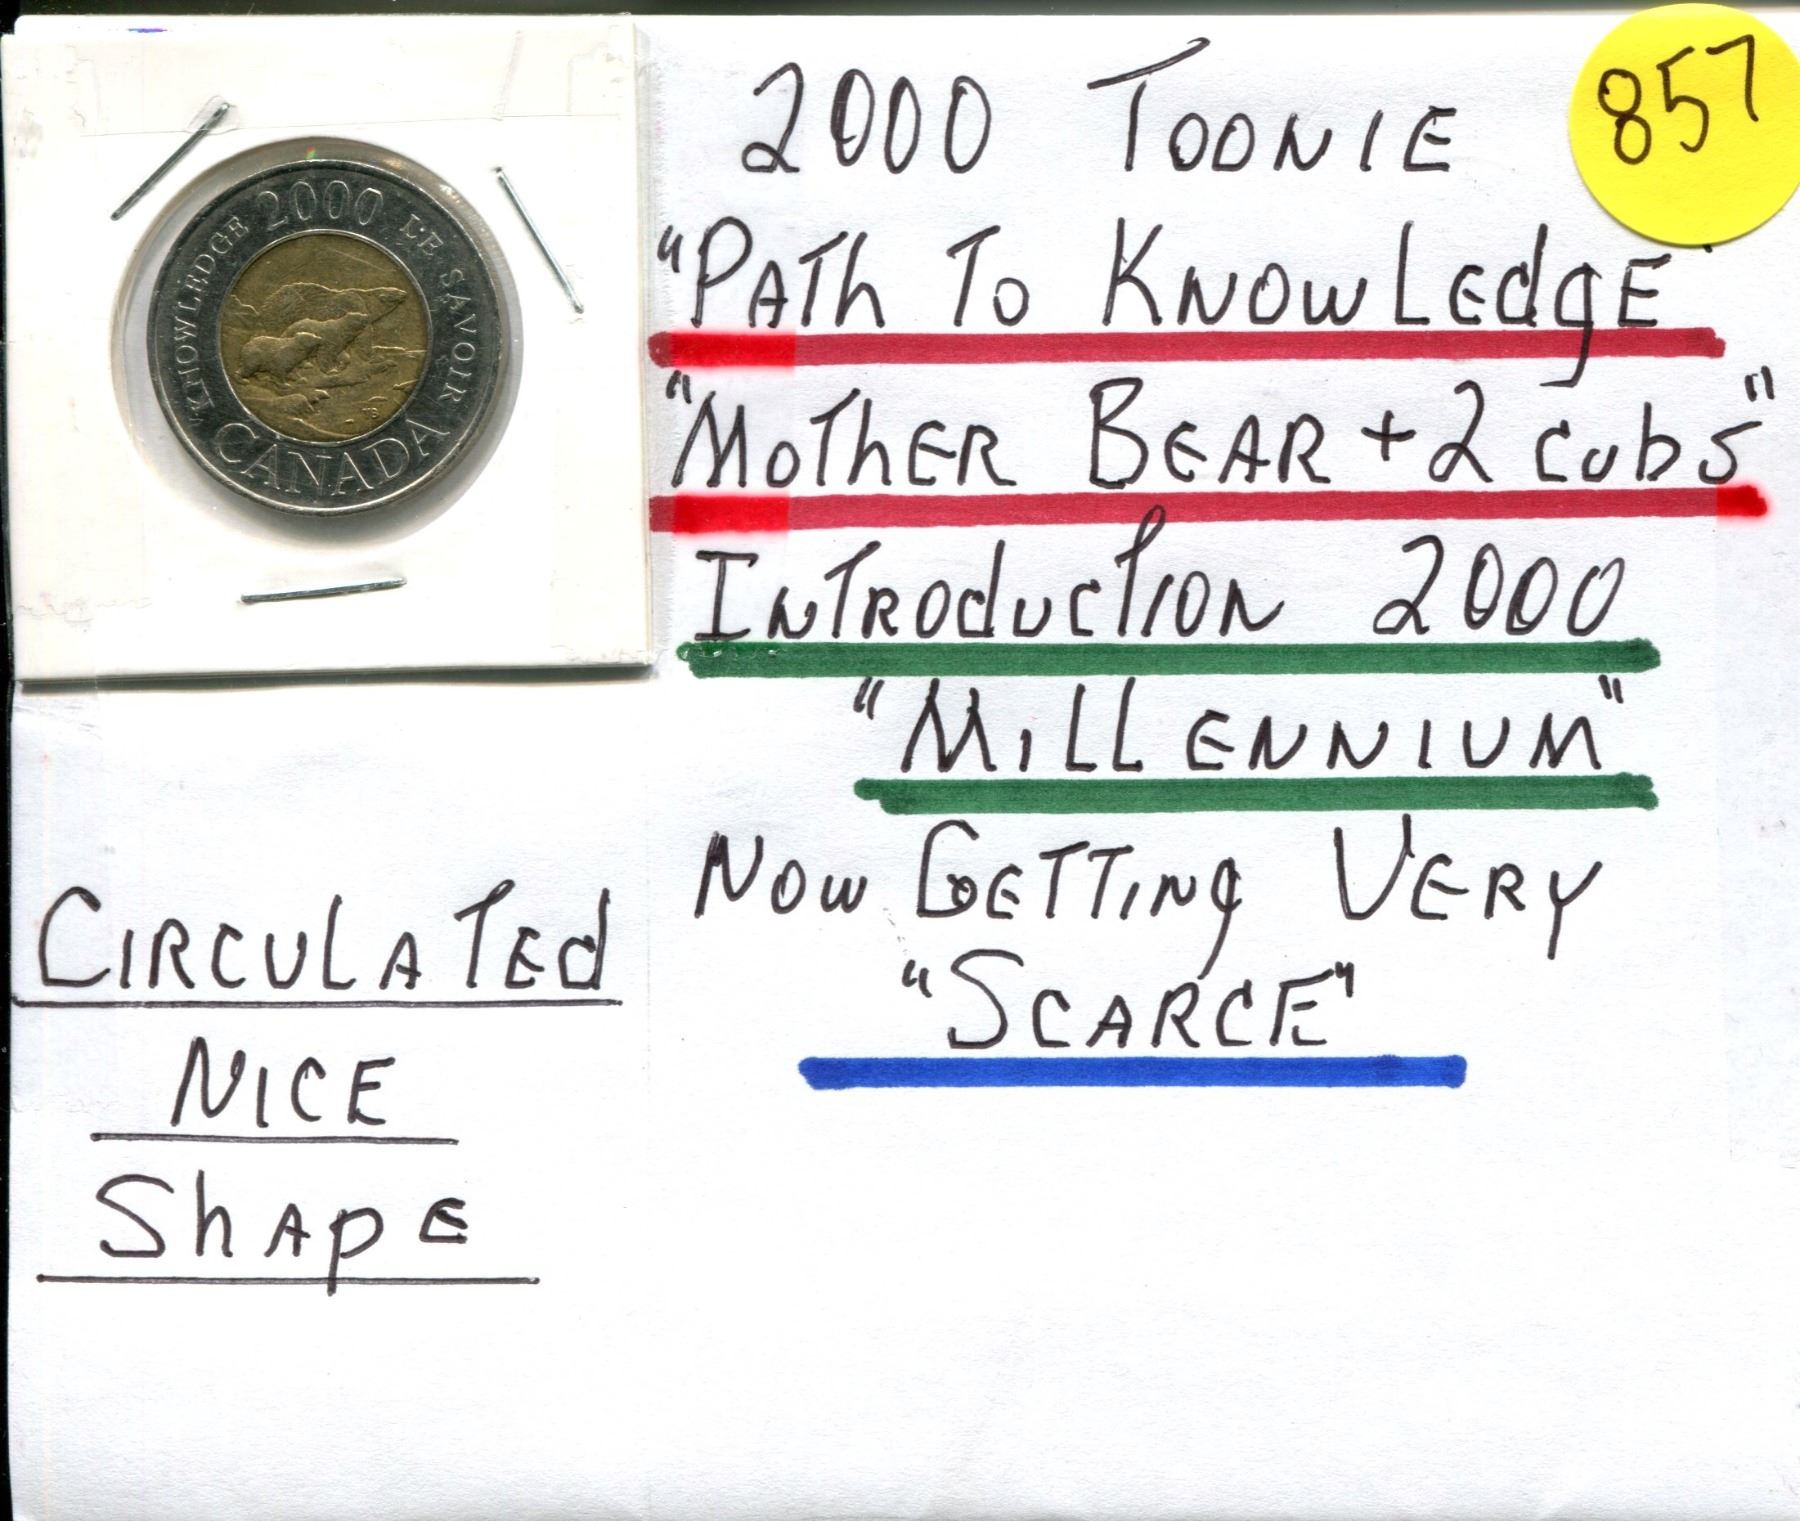 857
2000 TOONIE
"PATh To KNOWLEdgE"
"MoThER BEAR + 2 cubs"
INTRODucTION 2000
"MiLLENNIUM"
NOW GETTINg VERY
"SCARCE"
KNOWLEDGE 2000 LE SAVOIR
CANADA
CIRCULATEd
NICE
ShApE